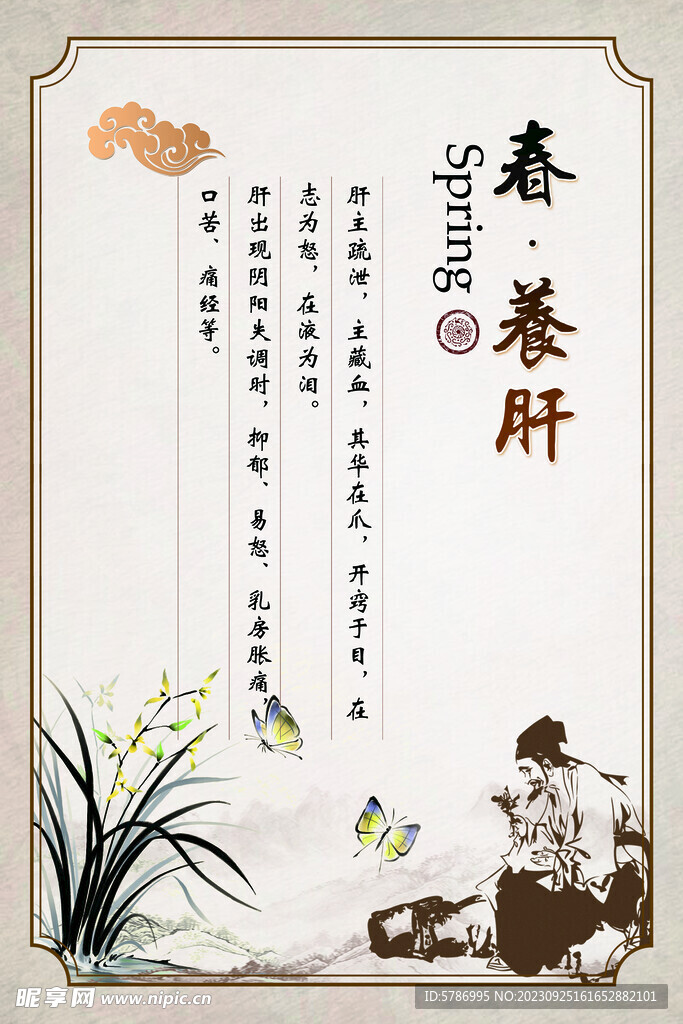 春·養肝
Spring
肝主疏泄，主藏血，其华在爪，开窍于目，在
志为怒，在液为泪。
肝出现阴阳失调时，抑郁、易怒、乳房胀痛，
口苦、痛经等。
昵享网 www.nipic.cn
ID:5786995 NO:20230925161652882101